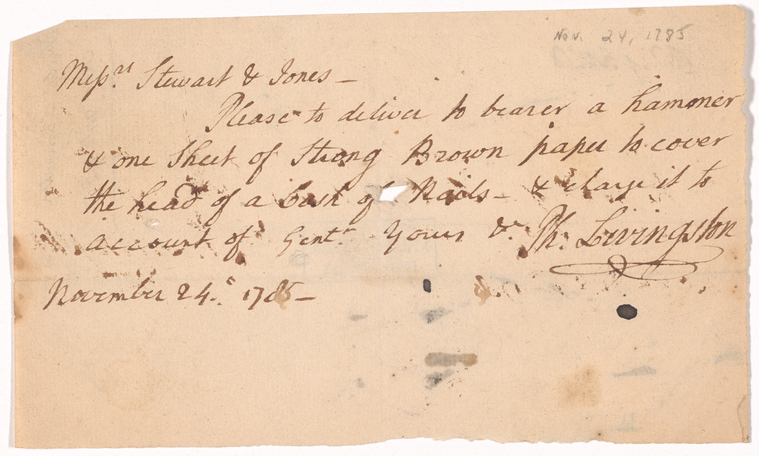 Nov. 24, 1785
Messrs. Stewart & Jones –
Please to deliver to bearer a hammer
& one Sheet of Strong Brown paper to cover
the head of a Cask of Nails – & charge it to
account of Gentn. Yours &c. Ph. Livingston
November 24. 1785 –